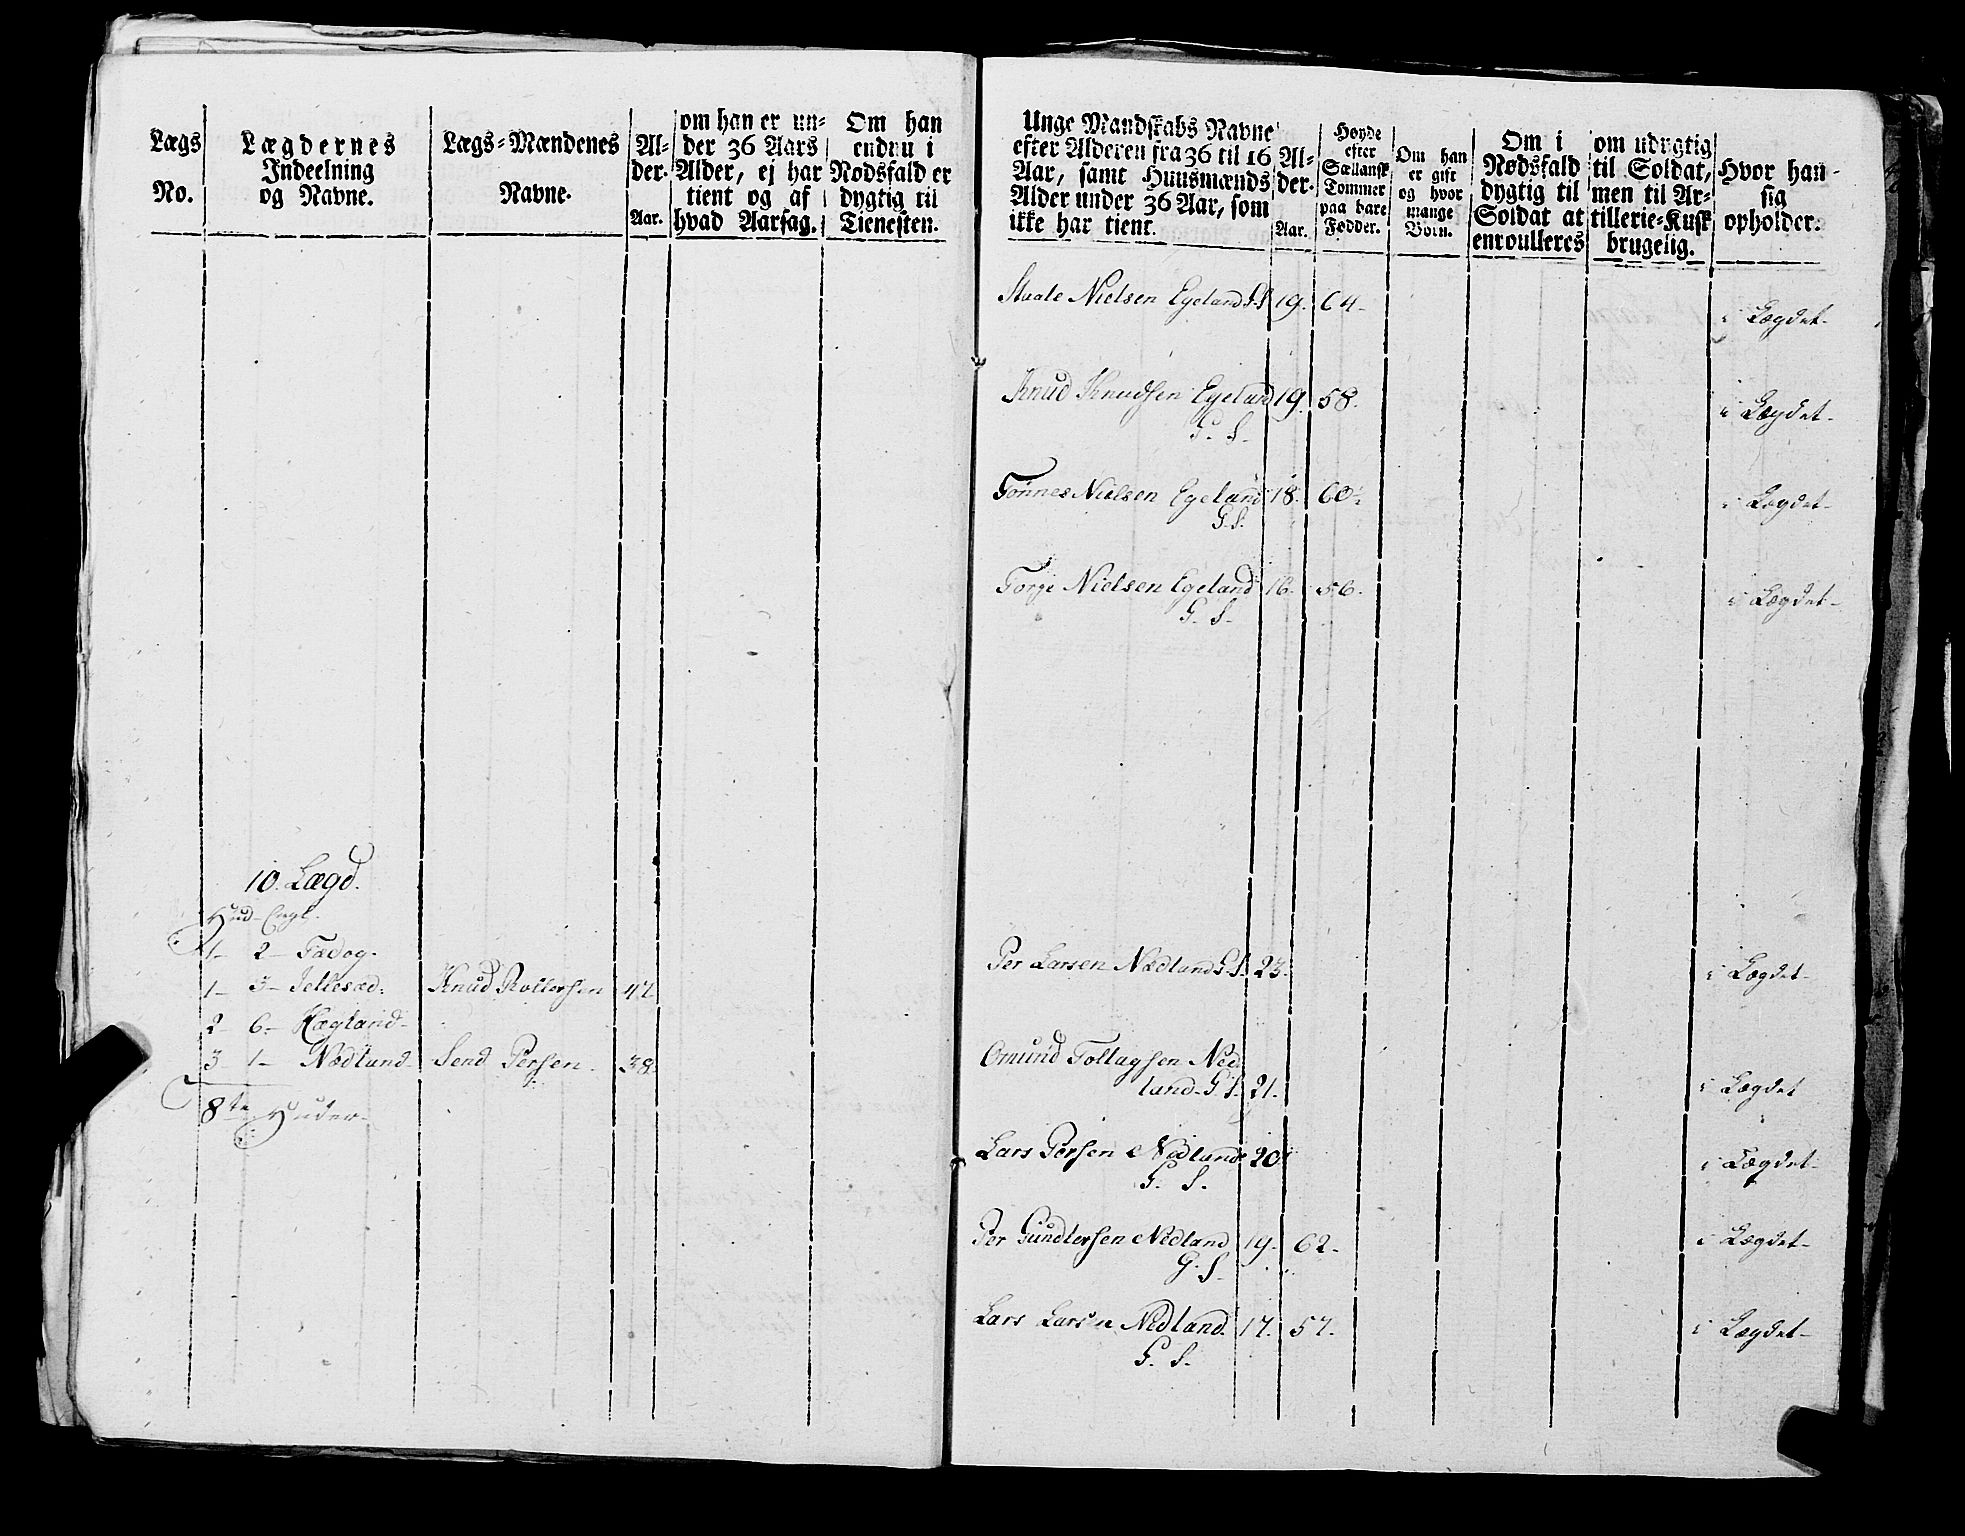 Lægs
No.
Lægdernes
Indeelning
og Navne.
Lægs-Mændenes
Navne.
Al-
der.
Aar.
om han er un-
der 36 Aars
Alder, ej har
tient og af
hvad Aarsag.
Om han
endnu i
Nødsfald er
dygtig til
Tienesten.
Unge Mandskabs Navne
efter Alderen fra 36 til 16
Aar, samt Huusmænds
Alder under 36 Aar, som
ikke har tient.
Al-
der.
Aar.
Høyde
efter
Sællansk
Tommer
paa bare
Fødder.
Om han
er gift
og hvor
mange
Børn.
Om i
Nødsfald
dygtig til
Soldat at
enroulleres
om udygtig
til Soldat,
men til Ar-
tillerie-Kusk
brugelig.
Hvor han
sig
opholder.
Staale Nielsen Egeland G.S. 19. 64. i Lægdet
Knud Knudsen Egeland 19. 58. i Lægdet
G. S.
Tønnes Nielsen Egeland 18. 60. i Lægdet
G.S.
Torje Nielsen Egeland 16. 56. i Lægdet
G. S.
10. Lægd.
Hud-Engl.
1- 2- Fædog. Per Larsen Nædland G.S. 23. i Lægdet
1- 3- Knud 47
2- 6- Hægland
3- 1- Nædland Send Persen 38. Omund Tollagsen Ned-
land. G.S. 21. i Lægdet
8te Huder
Lars Persen Nedland 20. i Lægdet
G. S.
Per Gundersen Nedland 19. 62. i Lægdet
G. S.
Lars Larsen Nedland 17. 57. i Lægdet
G. S.